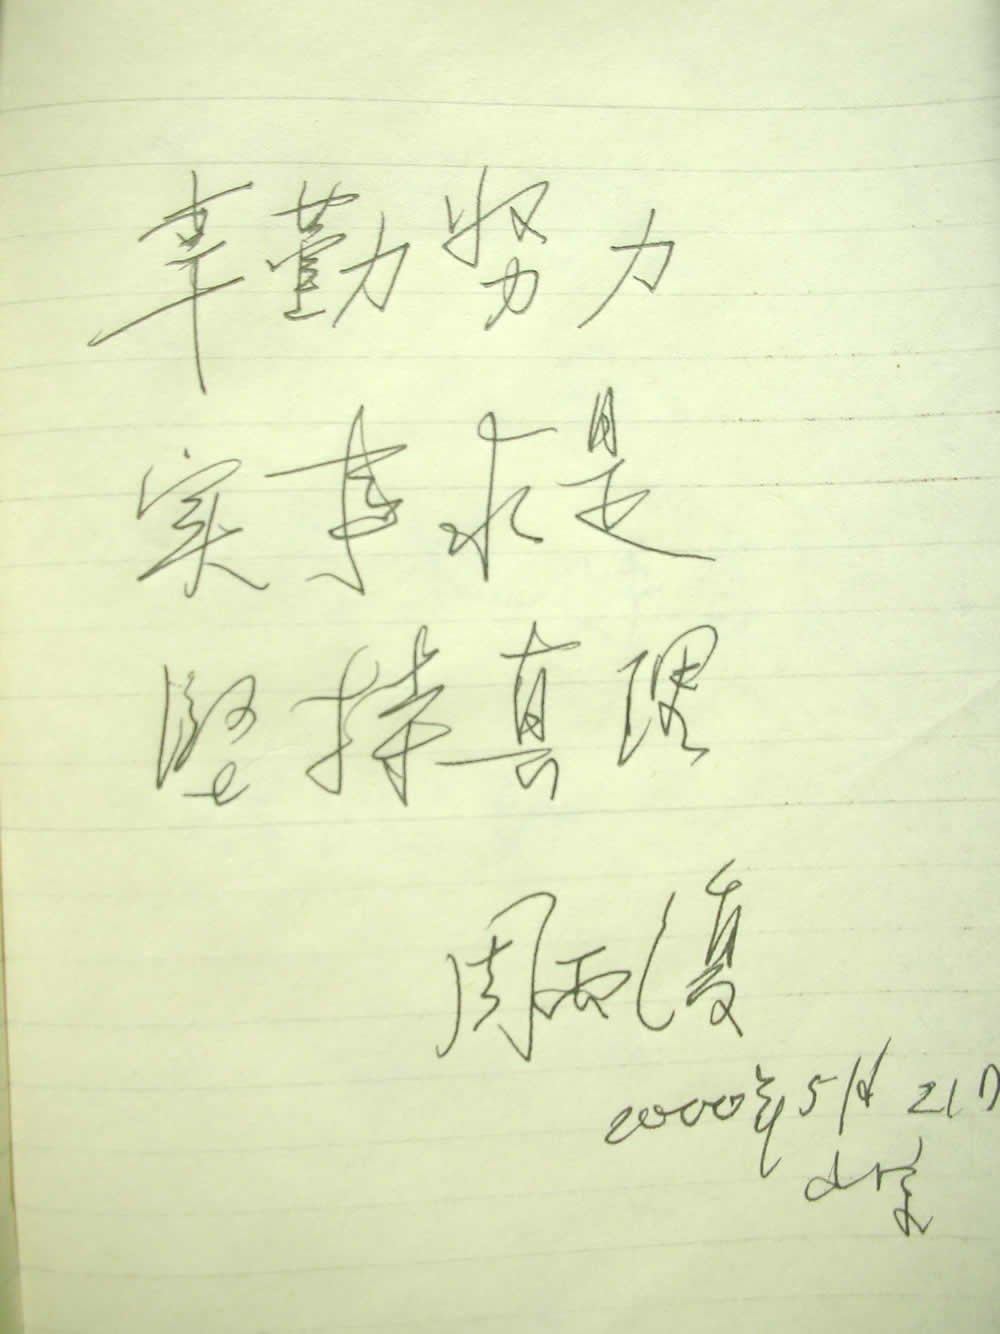 辛勤努力
实事求是
坚持真理
周而复
2000年5月21日